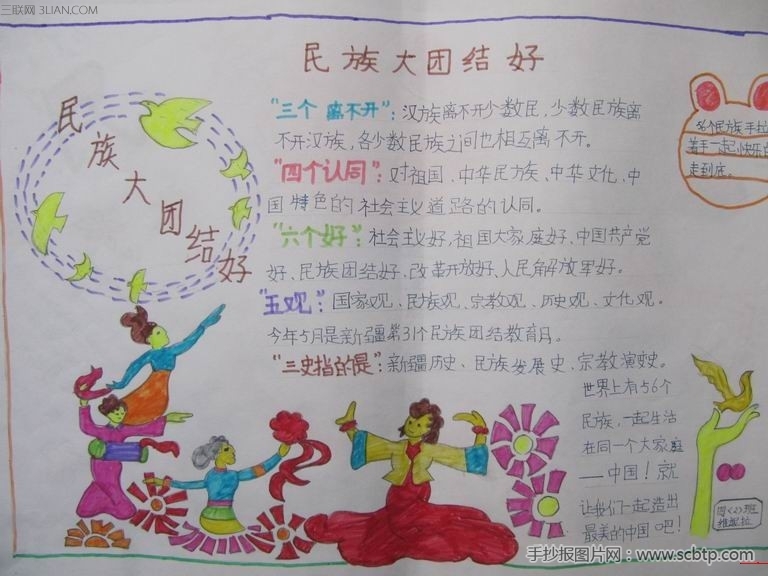 三联网 3LIAN.COM
民族大团结好
民族大团结好
"三个离不开"：汉族离不开少数民，少数民族离
不开汉族，各少数民族之间也相互离不开。
"四个认同"：对祖国、中华民族、中华文化、中
国特色的社会主义道路的认同。
"六个好"：社会主义好、祖国大家庭好、中国共产党
好、民族团结好、改革开放好、人民解放军好。
"五观"：国家观、民族观、宗教观、历史观、文化观。
今年5月是新疆第31个民族团结教育月。
"三史指的是"：新疆历史、民族发展史、宗教演变史。
56个民族手拉
着手一起快乐的
走到底。
世界上有56个
民族，一起生活
在同一个大家庭
——中国！就
让我们一起造出
最美的中国吧！
四〈2〉班
手抄报图片网：www.scbtp.com